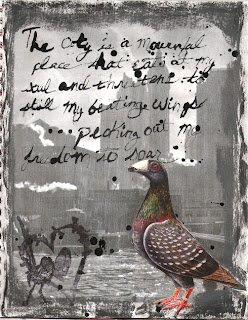 The city is a mournful
place that eats at my
soul and threatens to
still my beating wings
pecking out my
freedom to soar